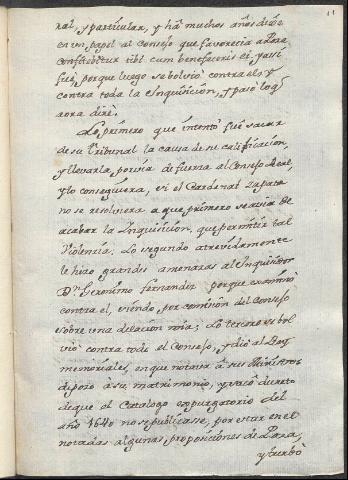 11
ral, y particular, y ha muchos años dixe
en un papel al Consejo que favorecia a Poza
confitebitur tibi cum benefeceris ei, y assi
fue, porque luego se bolvió contra el, y
contra toda la Inquisicion, y passó lo q̃
aora diré.
Lo primero que intentó fué sacar
de su Tribunal la causa de su calificación,
y llevarla, por via de fuerza al Consejo Real,
y lo consiguiera, si el Cardenal Zapata
no se resolviera a que primero se avia de
acabar la Inquisicion, que permitir tal
Violencia. Lo segundo atrevidamente
le hizo grandes amenazas al Inquisidor
Dn Geronimo fernandez porque examinó
contra el, siendo, por comision del Consejo
sobre una delacion mia; Lo tercero se bol
vió contra todo el Consejo, y dió al Rey
memoriales, en que notava á sus Ministros
de poco á su, matrimonio, y sacó decreto
de que el Catalogo expurgatorio del
año 1640 no se publicasse, por estar en el
notadas algunas, proposiciones de Poza,
y turbó